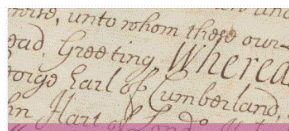 wise, unto whom these our
ead, Greeting, Wherea
eorge Earl of Cumberland,
hn Hart of Lond